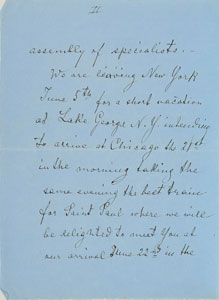 II
assembly of specialists. -
We are leaving New York
June 5th for a short vacation
at Lake George N.Y. intending
to arrive at Chicago the 21st
in the morning taking the
same evening the best train
for Saint Paul where we will
be delighted to meet You at
our arrival June 22d in the